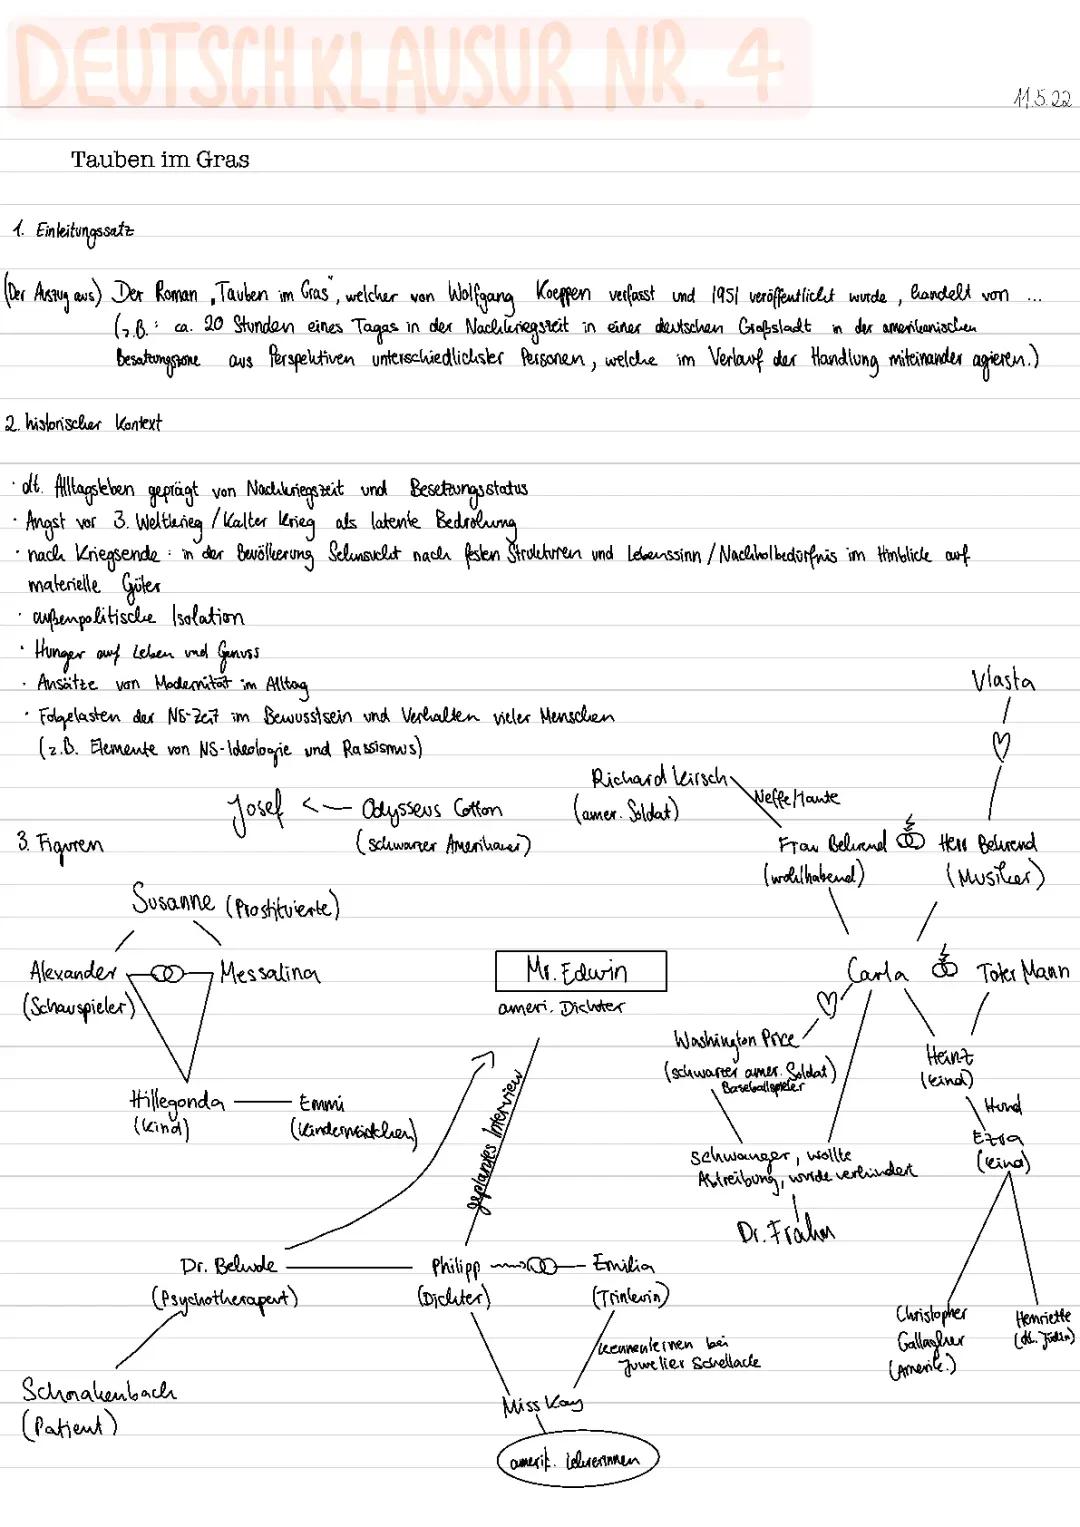 DEUTSCH KLAUSUR NR. 4
11.5.22
Tauben im Gras
1. Einleitungssatz
(Der Auszug aus) Der Roman „Tauben im Gras", welcher von Wolfgang Koeppen verfasst und 1951 veröffentlicht wurde, handelt von ...
(z.B.: ca. 20 Stunden eines Tages in der Nachkriegszeit in einer deutschen Großstadt in der amerikanischen
Besatzungszone aus Perspektiven unterschiedlichster Personen, welche im Verlauf der Handlung miteinander agieren.)
2. historischer Kontext
· dt. Alltagsleben geprägt von Nachkriegszeit und Besetzungsstatus
· Angst vor 3. Weltkrieg / Kalter Krieg als latente Bedrohung
· nach Kriegsende: in der Bevölkerung Sehnsucht nach festen Strukturen und Lebenssinn / Nachholbedürfnis im Hinblicke auf
materielle Güter
· außenpolitische Isolation
· Hunger auf Leben und Genuss
· Ansätze von Modernität im Alltag
· Folgelasten der NS-Zeit im Bewusstsein und Verhalten vieler Menschen
(z.B. Elemente von NS-Ideologie und Rassismus)
Vlasta
Richard Kirsch
(amer. Soldat)
Neffe/Tante
Josef <— Odysseus Cotton
(schwarzer Amerikaner)
3. Figuren
Frau Behrend
(wohlhabend)
Herr Behrend
(Musiker)
Susanne (Prostituierte)
Alexander
(Schauspieler)
Messalina
Mr. Edwin
ameri. Dichter
Carla
Toter Mann
Washington Price
(schwarzer amer. Soldat)
Baseballspieler
Heinz
(Kind)
Hillegonda
(Kind)
Emmi
(Kindermädchen)
geplantes Interview
Hund
Ezra
(Kind)
schwanger, wollte
Abtreibung, wurde verhindert
Dr. Frahm
Dr. Behude
(Psychotherapeut)
Philipp
(Dichter)
Emilia
(Trinkerin)
Christopher
Gallagher
(Amerik.)
Henriette
(dt. Jüdin)
kennenlernen bei
Juwelier Schellack
Schnakenbach
(Patient)
Miss Kay
amerik. Lehrerinnen